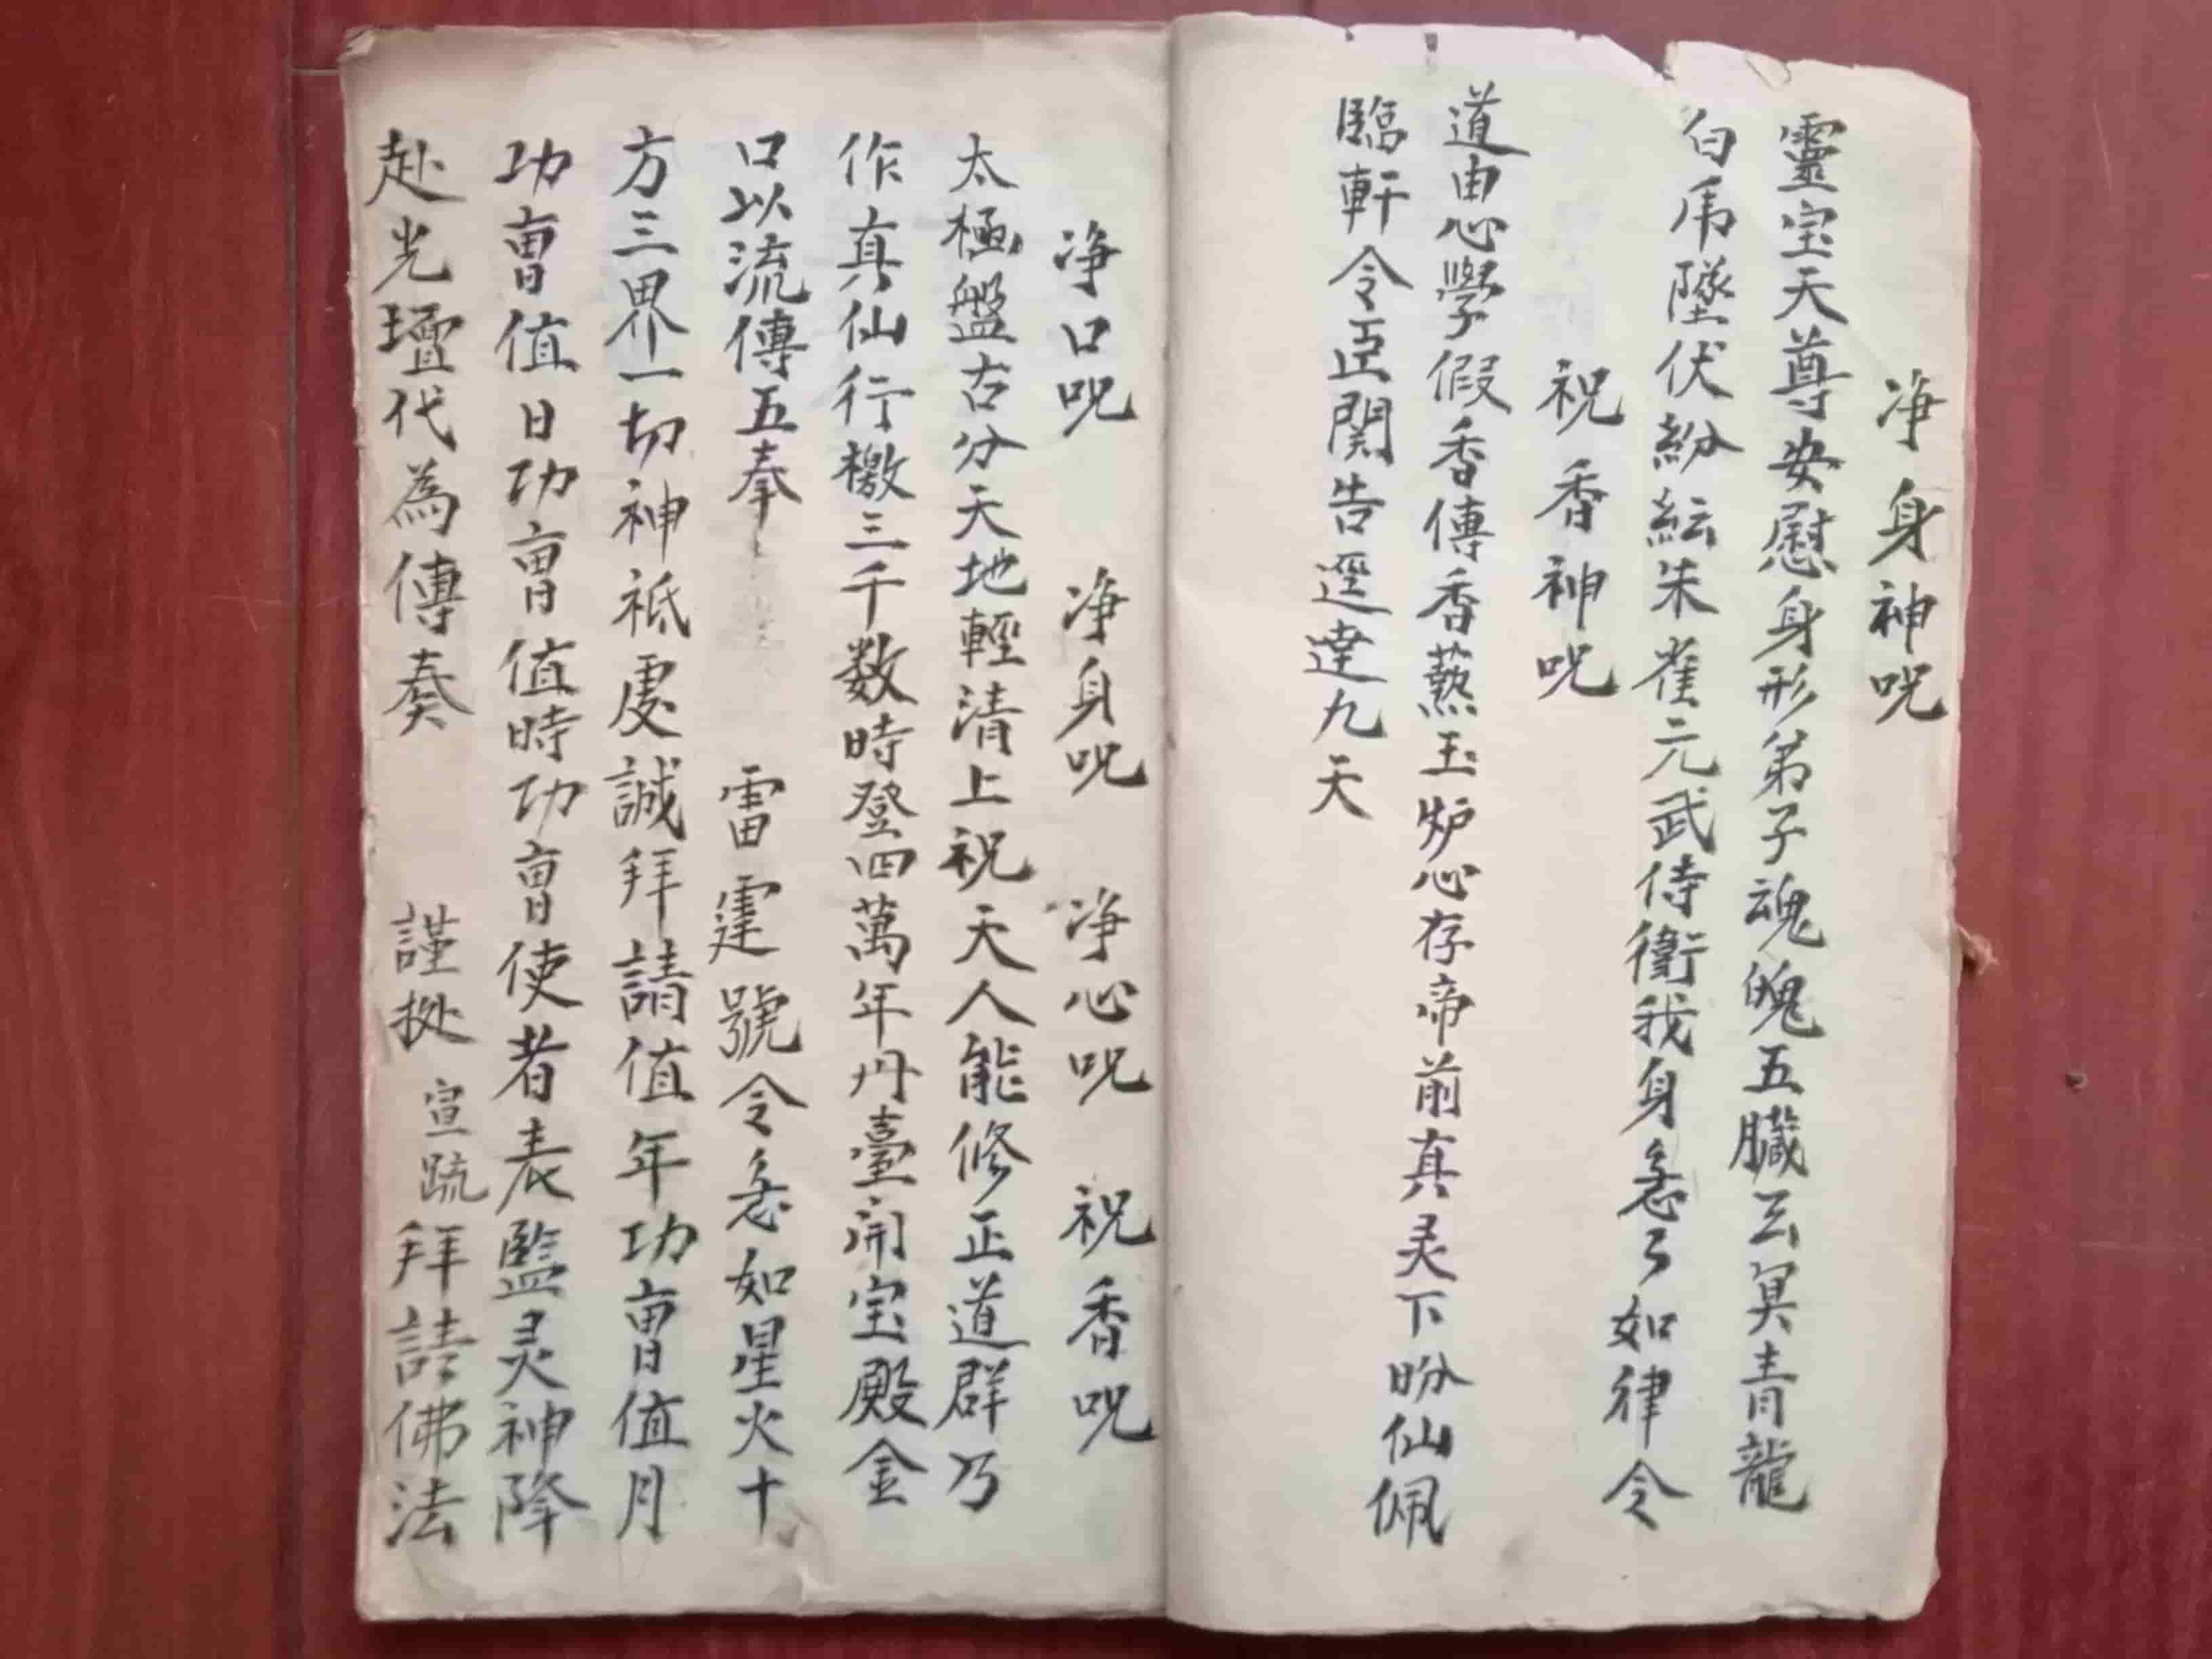 净身神咒
靈宝天尊安慰身形弟子魂魄五臟玄冥青龍
白虎墜伏紛紜朱雀元武侍衛我身急々如律令
祝香神咒
道由心學假香傳香爇玉炉心存帝前真灵下盼仙佩
臨軒令臣関告逕達九天
净口咒 净身咒 净心咒 祝香咒
太極盤古分天地輕清上祝天人能修正道群乃
作真仙行檄三千数時登四萬年丹臺開宝殿金
口以流傳五奉 雷霆號令急如星火十
方三界一切神祇處誠拜請值年功曹值月
功曹值日功曹值時功曹使者表監灵神降
赴光壇代為傳奏 謹拠 宣疏 拜請佛法